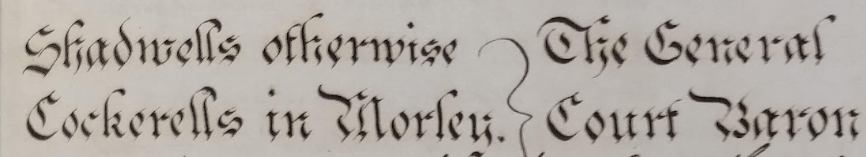 Shadwells otherwise } The General
Cockerells in Morley. } Court Baron